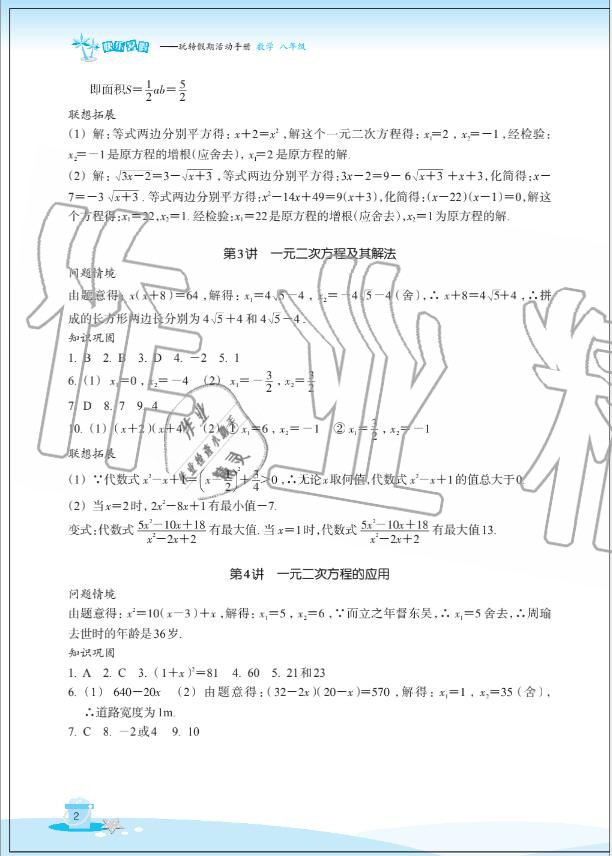 快乐暑假 ——玩转假期活动手册 数学 八年级
即面积S=1/2ab=5/2
联想拓展
(1) 解:等式两边分别平方得: x+2=x²,解这个一元二次方程得: x₁=2, x₂=-1,经检验:
x₂=-1是原方程的增根(应舍去), x₁=2是原方程的解.
(2) 解: √3x-2=3-√x+3,等式两边分别平方得:3x-2=9-6√x+3+x+3,化简得:x-
7=-3√x+3.等式两边分别平方得:x²-14x+49=9(x+3),化简得:(x-22)(x-1)=0,解这
个方程得:x₁=22,x₂=1.经检验:x₁=22是原方程的增根(应舍去),x₂=1为原方程的解.
第3讲 一元二次方程及其解法
问题情境
由题意得: x(x+8)=64,解得: x₁=4√5-4, x₂=-4√5-4(舍),∴ x+8=4√5+4,∴拼
成的长方形两边长分别为4√5+4和4√5-4.
知识巩固
1. B 2. B 3. D 4. -2 5. 1
6. (1) x₁=0, x₂=-4 (2) x₁=-3/2, x₂=3/2
7. D 8. 7 9. 4
10. (1) (x+2)(x+4) (2) ① x₁=6, x₂=-1 ② x₁= /2, x₂=-1
联想拓展
(1) ∵代数式x²-x+1=(x-1/2)²+3/4>0,∴无论x取何值,代数式x²-x+1的值总大于0.
(2) 当x=2时, 2x²-8x+1有最小值-7.
变式:代数式 5x²-10x+18/x²-2x+2 有最大值.当x=1时,代数式 5x²-10x+18/x²-2x+2 有最大值13.
第4讲 一元二次方程的应用
问题情境
由题意得: x²=10(x-3)+x,解得: x₁=5, x₂=6,∵而立之年督东吴,∴ x₁=5舍去,∴周瑜
去世时的年龄是36岁.
知识巩固
1. A 2. C 3. (1+x)²=81 4. 60 5. 21和23
6. (1) 640-20x (2) 由题意得:(32-2x)(20-x)=570,解得: x₁=1, x₂=35(舍),
∴道路宽度为1m.
7. C 8. -2或4 9. 10
2
作业精灵
作业
精灵